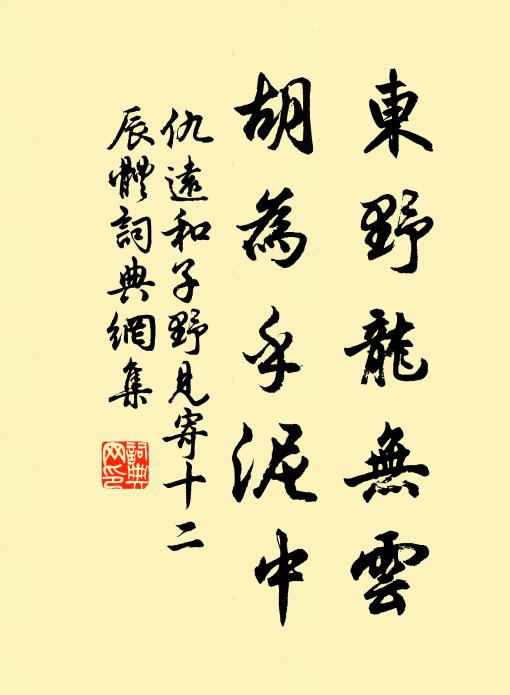 東野龍無雲
胡為乎泥中
仇遠和子野見寄十二
辰體詞典網集
詞典
网印